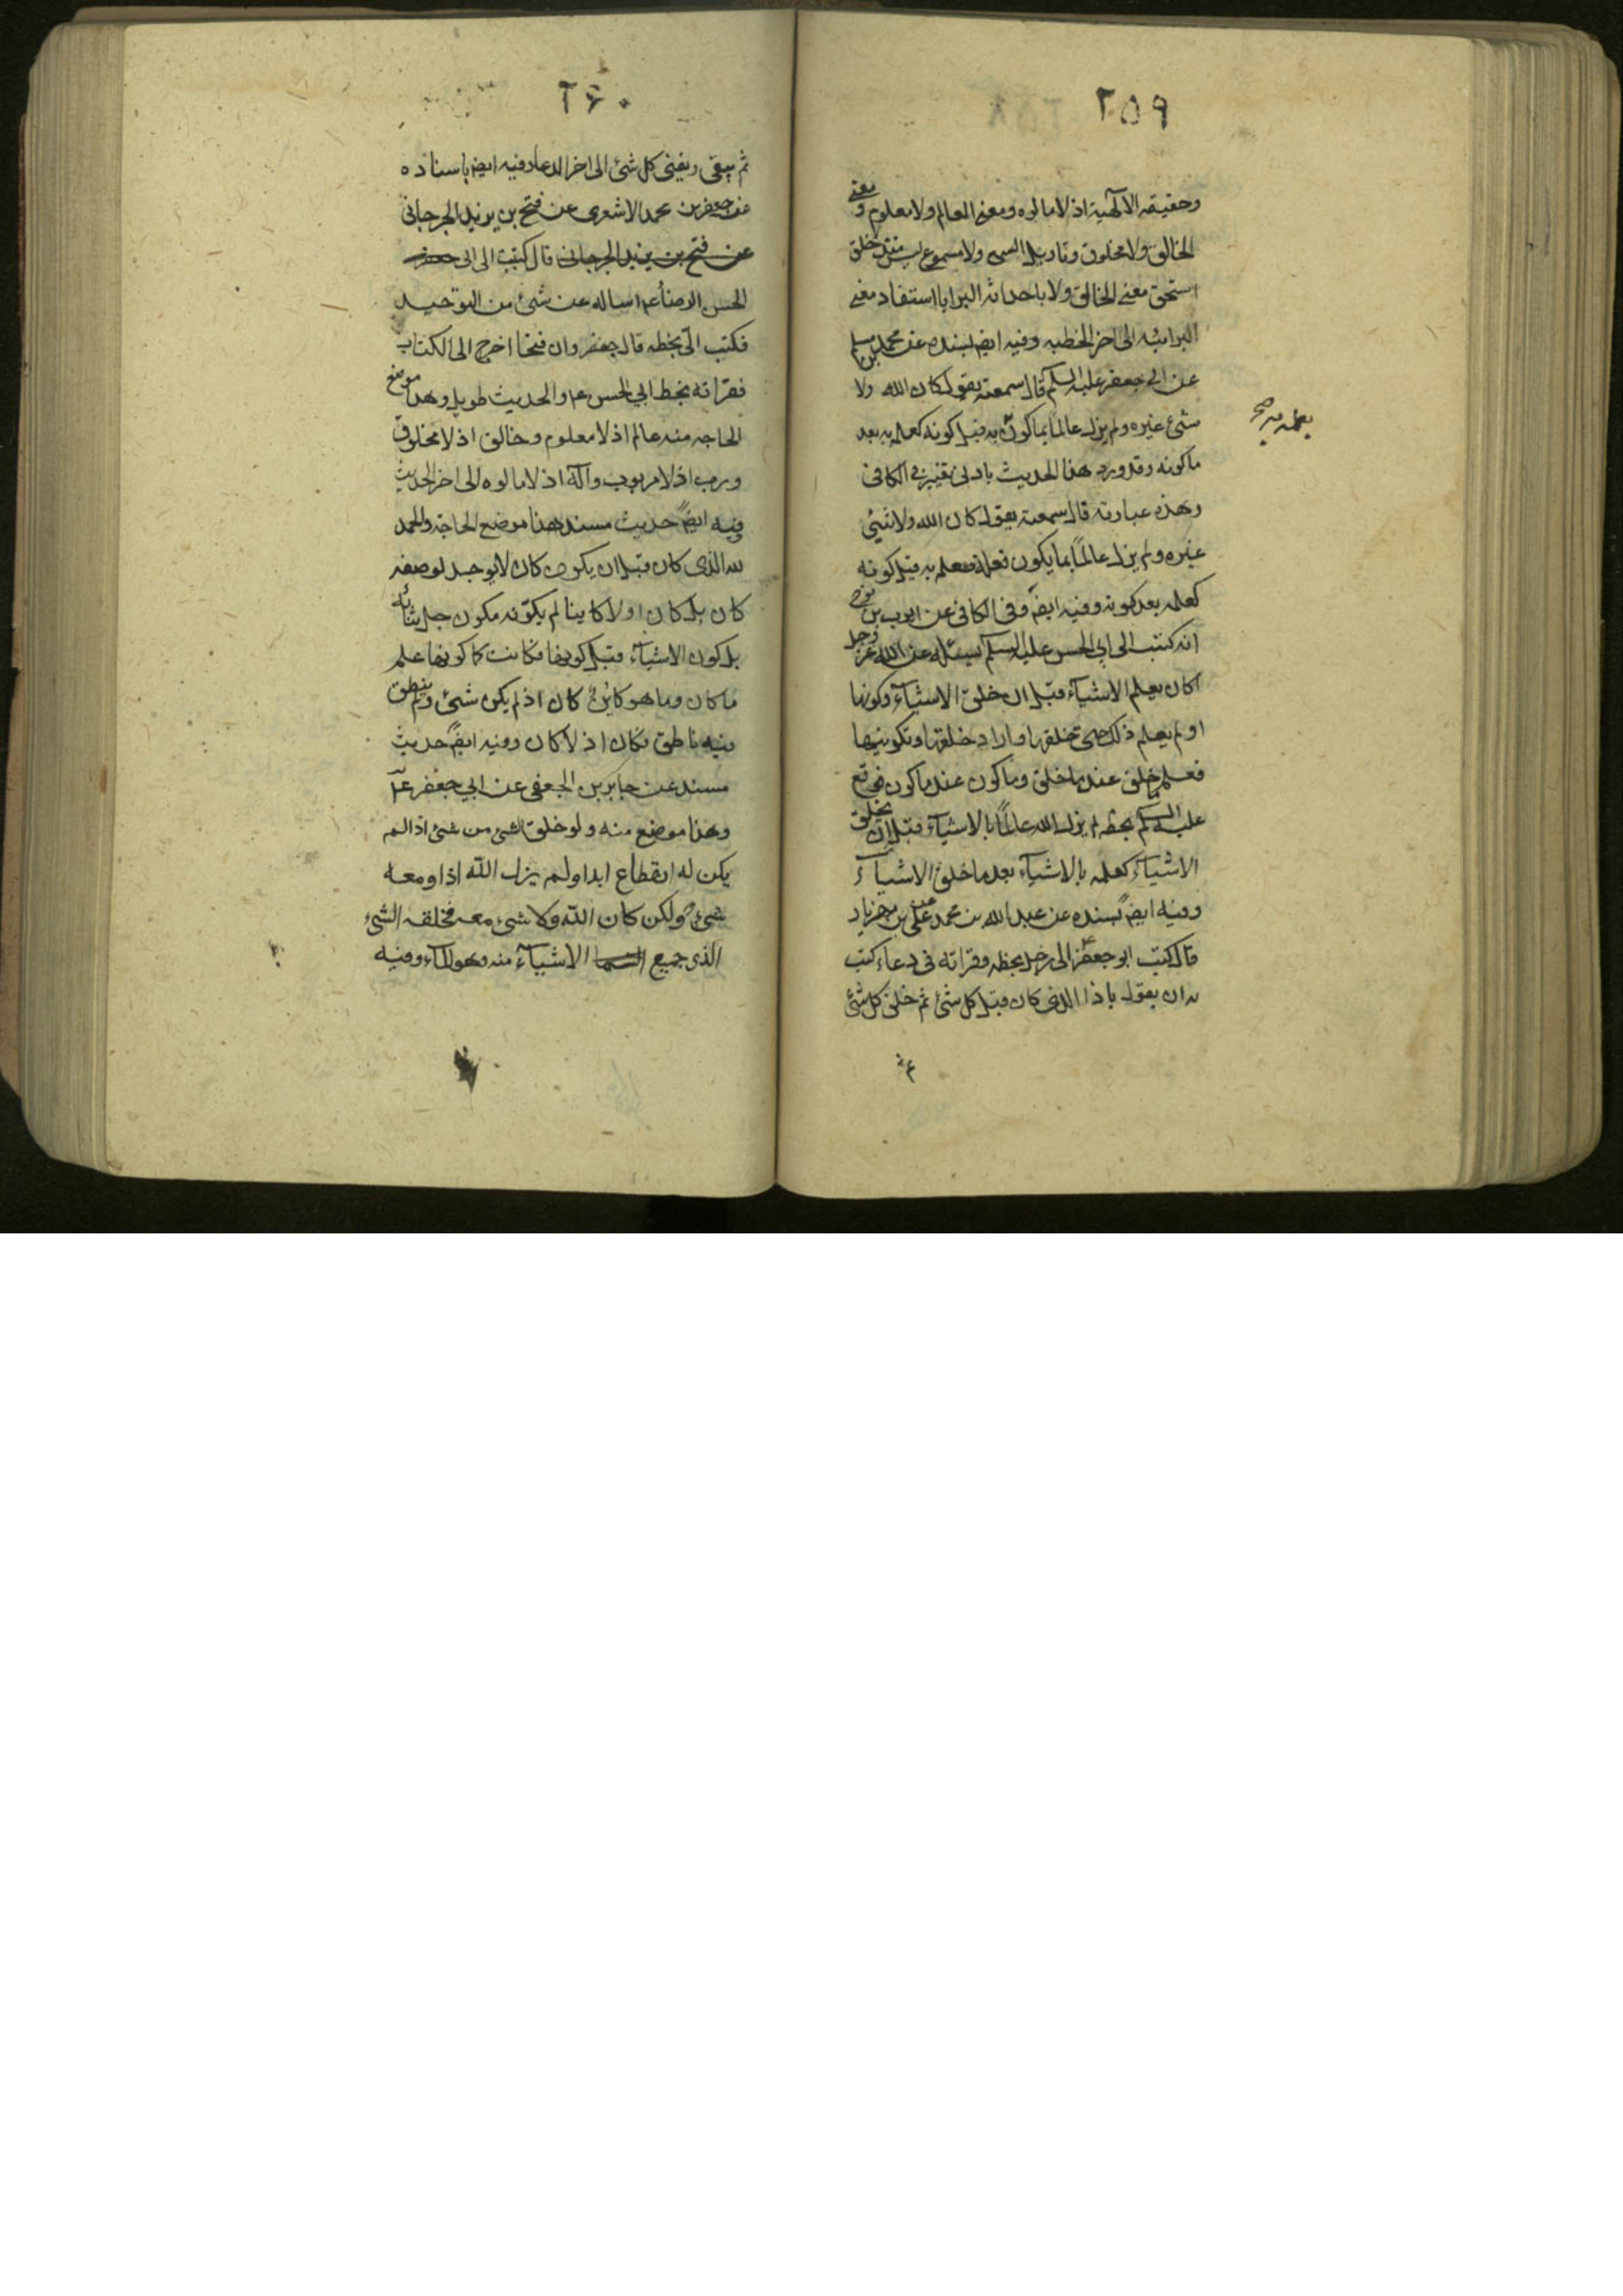 ٢٥٩
وحقيقه الالهية اذ لا مالوه ومعنى العالم ولا معلوم ومعنى
الخالق ولا مخلوق وتاويل السمع ولا مسموع ليس منذ خلق
استحق معنى الخالق ولا باحداثه البرايا استفاد معنى
البرائيه الى اخر الخطبه وفيه ايضا بسنده عن محمد بن مسلم
عن ابي جعفر عليه السلم قال سمعته يقول كان الله ولا
شئ غيره ولم يزل عالماً بما كوّن به قبل كونه كعلمه به بعد
ما كونه وقد ورد هذا الحديث بادنى تغيير في الكافي
وهذه عبارته قال سمعته يقول كان الله ولا شئ
غيره ولم يزل عالماً بما يكون فعلمه به قبل كونه
كعلمه بعد كونه وفيه ايضاً وفي الكافي عن ايوب بن نوح
انه كتب الى ابي الحسن عليه السلم يسئله عن الله عز وجل
اكان يعلم الاشياء قبل ان خلق الاشياء وكونها
او لم يعلم ذلك حتى خلقها واراد خلقها وتكوينها
فعلم ما خلق عند ما خلق وما كون عند ما كون فوقع
عليه السلم بخطه لم يزل الله عالماً بالاشياء قبل ان يخلق
الاشياء كعلمه بالاشياء بعد ما خلق الاشياء
وفيه ايضاً بسنده عن عبد الله بن محمد عن علي بن مهزيار
قال كتب ابو جعفر ع الى رجل بخطه وقراته في دعاء كتب
به ان يقول يا ذا الذي كان قبل كل شئ ثم خلق كل شئ
٢۶٠
ثم يبقى ويفنى كل شئ الى اخر الدعا وفيه ايضا باسناده
عن جعفر بن محمد الاشعري عن فتح بن يزيد الجرجاني
عن فتح بن يزيد الجرجاني قال كتبت الى ابي جعفر
الحسن الرضا ع اساله عن شئ من التوحيد
فكتب اليّ بخطه قال جعفر وان فتحا اخرج الى الكتاب
فقراته بخط ابي الحسن ع والحديث طويل وهذا موضع
الحاجه منه عالم اذ لا معلوم وخالق اذ لا مخلوق
ورب اذ لا مربوب واله اذ لا مالوه الى اخر الحديث
وفيه ايضاً حديث مسند هذا موضع الحاجة والحمد
لله الذي كان قبل ان يكون كان لا يوجد لوصفه
كان بل كان اولا كاينا لم يكوّنه مكون جل ثناؤه
بل كون الاشياء قبل كونها فكانت كما كونها علم
ما كان وما هو كاينٌ كان اذ لم يكن شئ ولم ينطق
فيه ناطق فكان اذ لا كان وفيه ايضاً حديث
مسند عن جابر بن الجعفي عن ابي جعفر ع
وهذا موضع منه ولو خلق الشئ من شئ اذا لم
يكن له انقطاع ابدا ولم يزل الله اذا ومعه
شئ ولكن كان الله ولا شئ معه فخلقه الشئ
الذي جميع الاشياء منه وهو الماء وفيه